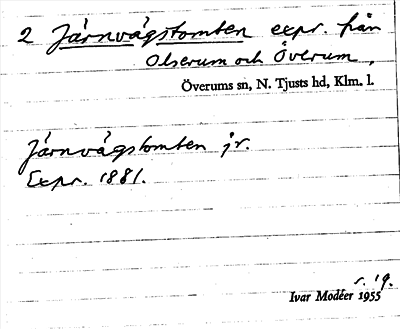 2 Järnvägstomten expr. från
Olserum och Överum,
Överums sn, N. Tjusts hd, Klm. l.
Järnvägstomten jr.
Expr. 1881.
s. 19.
Ivar Modéer 1955